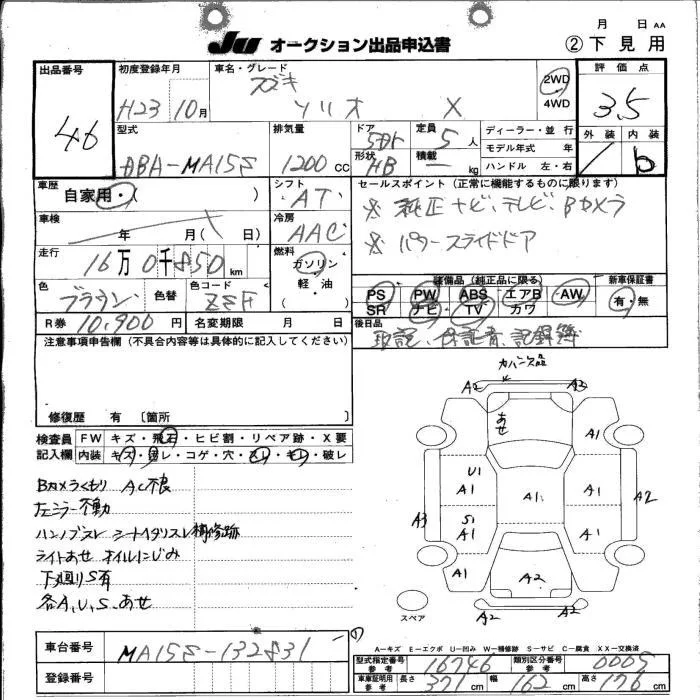 Ju オークション出品申込書
月 日 AA
②下見用
出品番号
46
初度登録年月
H23 10月
車名・グレード
スズキ
ソリオ X
2WD
4WD
評価点
3.5
外装 内装
/ b
型式
DBA-MA15S
排気量
1200cc
ドア
5Dr
形状
HB
定員
5人
積載
— kg
ディーラー・並行
モデル年式 年
ハンドル 左・右
車歴
自家用・( )
シフト
AT
車検
年 月( 日)
冷房
AAC
走行
16万0千850km
燃料
ガソリン
軽油
( )
色
ブラウン
色替
色コード
ZSF
R券 10,900円
名変期限 月 日
セールスポイント(正常に機能するものに限ります)
※ 純正ナビ、テレビ、Bカメラ
※ パワースライドドア
装備品(純正品に限る)
PS PW ABS エアB AW
SR ナビ TV カワ
新車保証書
有・無
後日品
取説、保証書、記録簿
注意事項申告欄(不具合内容等は具体的に記入してください)
修復歴 有〔箇所 〕
検査員記入欄
FW キズ・飛石・ヒビ割・リペア跡・X要
内装 キズ・汚レ・コゲ・穴・スレ・キレ・破レ
Bカメラくもり AC不良
左ミラー不動
ハンノブスレ シートヘタリスレ補修跡
ライトあせ オイルにじみ
下廻りS有
各A,U,S,あせ
カバー欠品
A2 A3
あせ
A1
U1
A1 A1 A1
A3 A2
S1
A1 A1
A1
A2
A2 A2
スペア
車台番号
MA15S-132831
登録番号
A—キズ E—エクボ U—凹み W—補修跡 S—サビ C—腐食 XX—交換済
型式指定番号 参考 16746
類別区分番号 参考 0009
車庫証明用 参考 長さ 371cm 幅 162cm 高さ 176cm